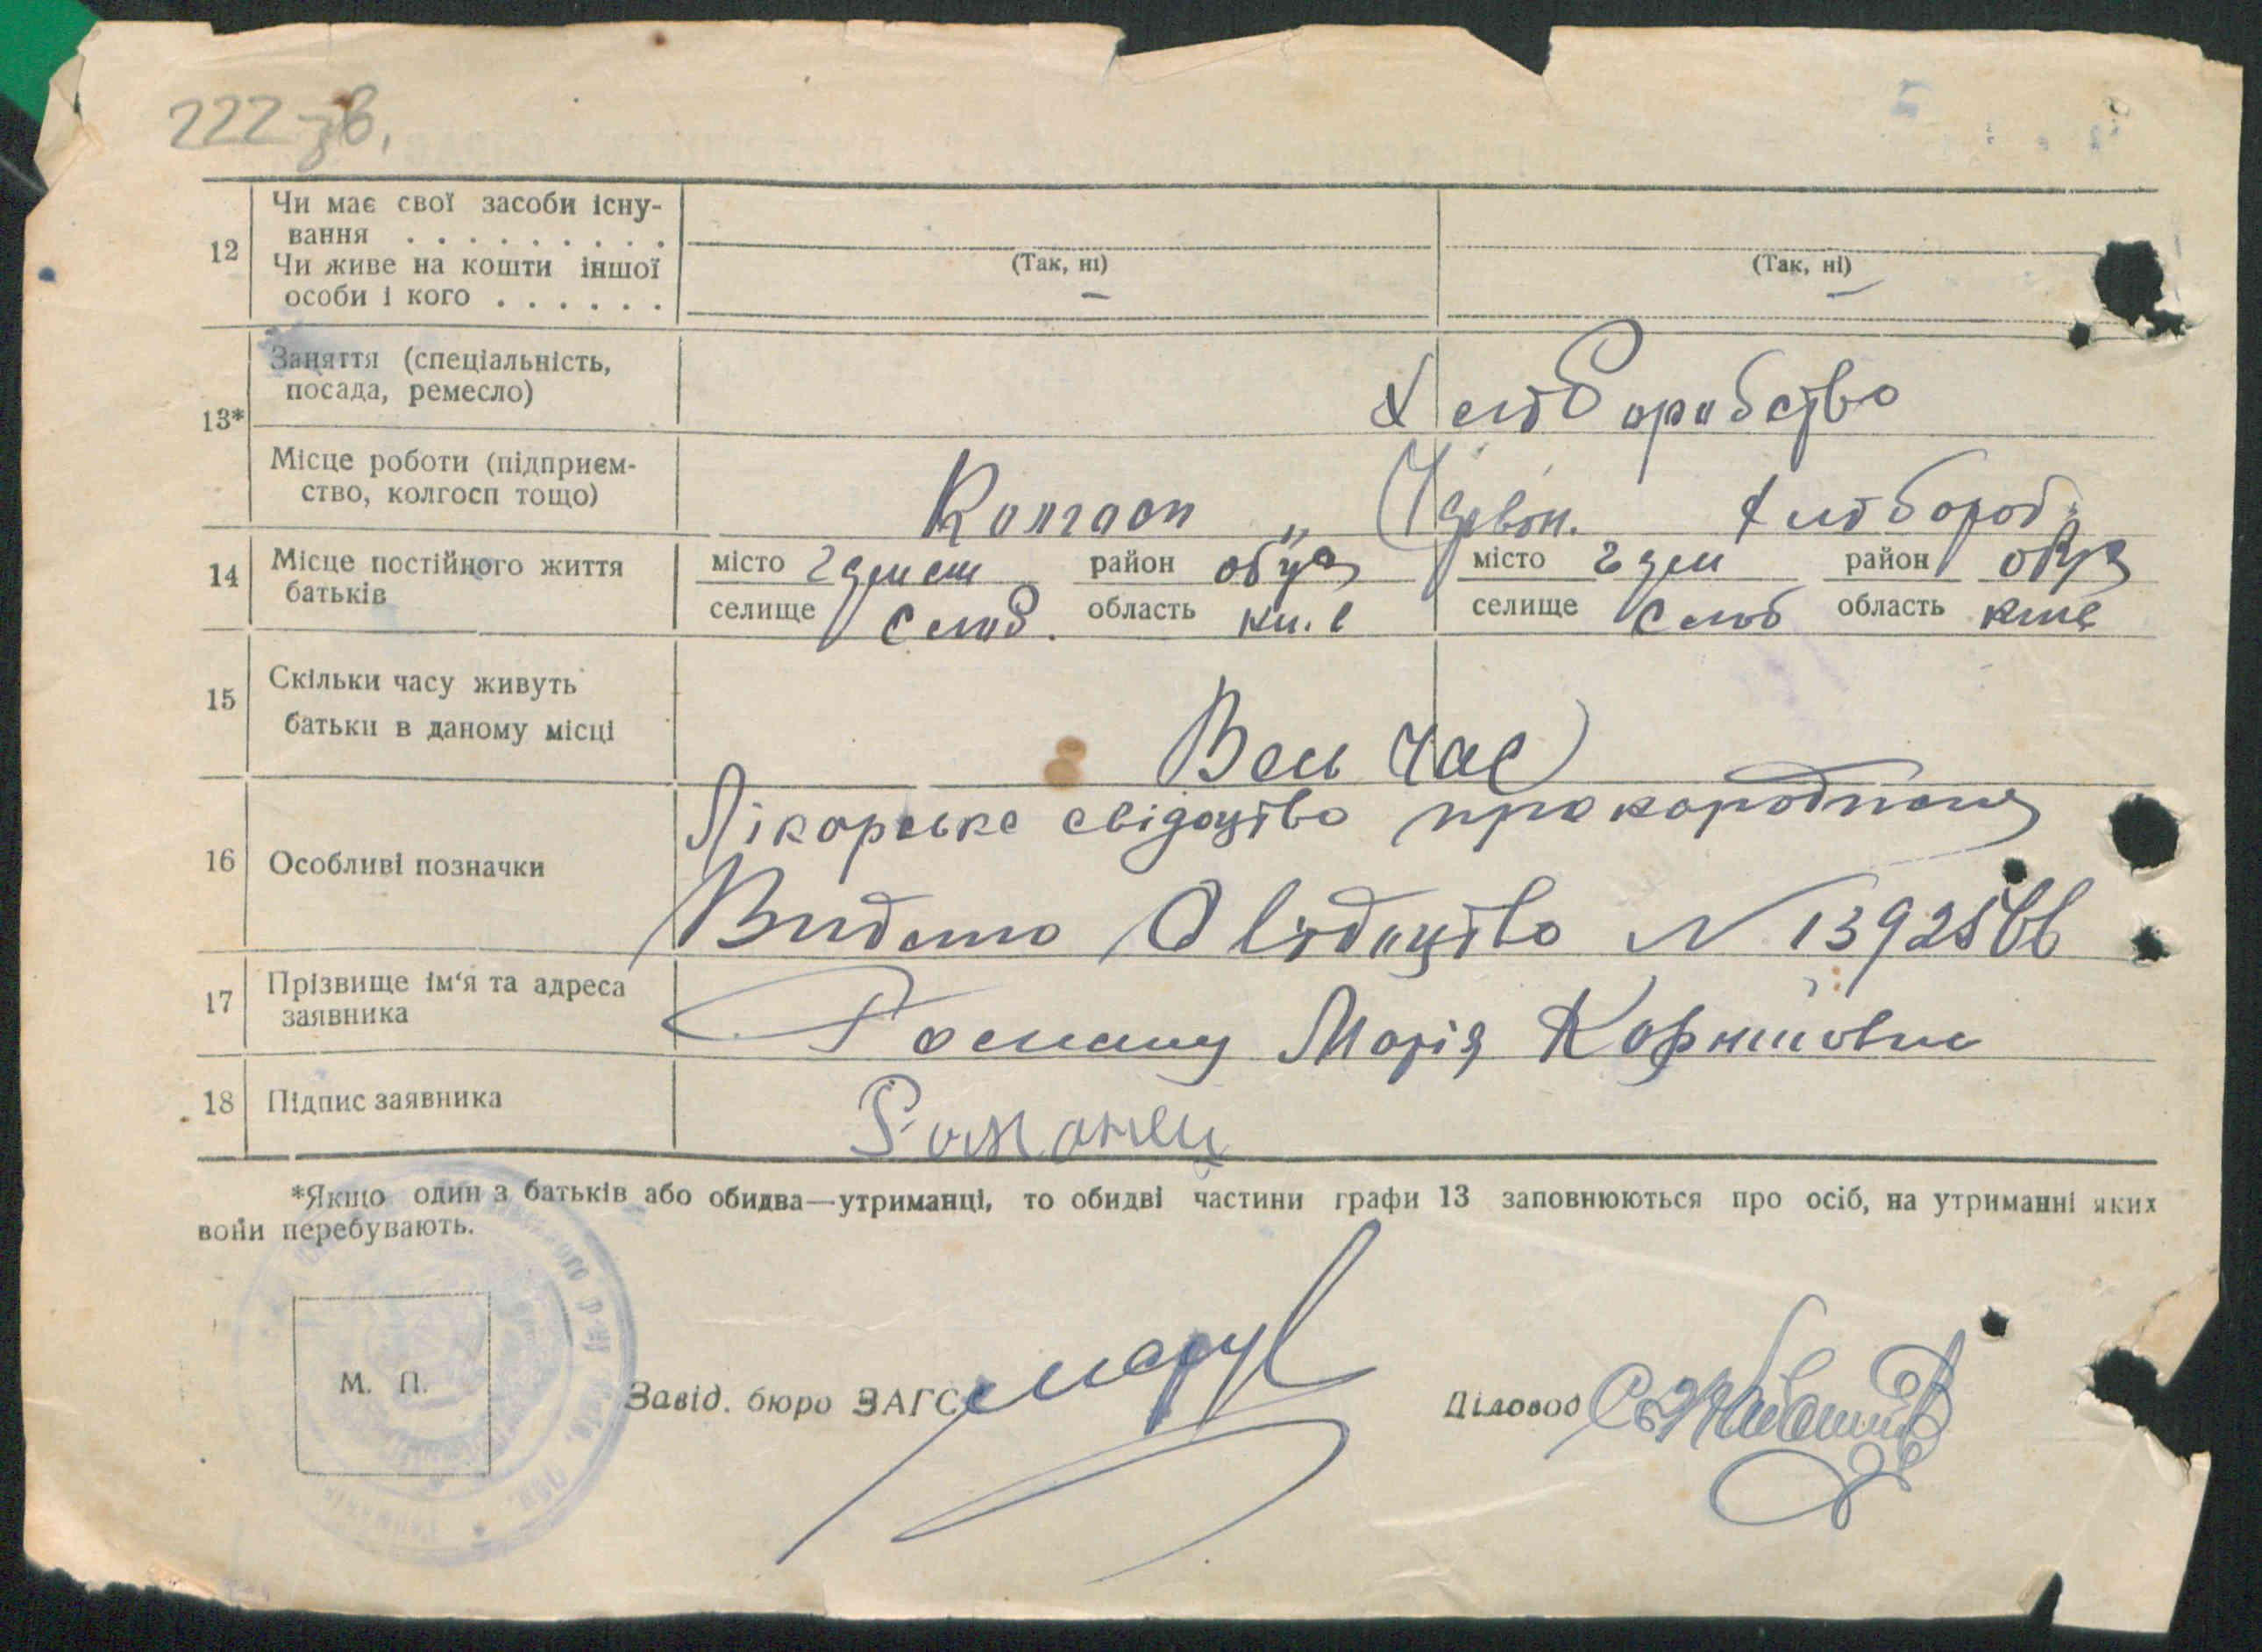 222 зв.
12 Чи має свої засоби існу-
вання . . . . . . . . .
Чи живе на кошти іншої
особи і кого . . . . . .
(Так, ні) (Так, ні)
— —
13* Заняття (спеціальність,
посада, ремесло)
Хліборобство
Місце роботи (підприєм-
ство, колгосп тощо)
Колгосп „ Червон. Хлібороб"
14 Місце постійного життя
батьків
місто район обух місто район обух
селище Слоб. область селище Слоб область киє
15 Скільки часу живуть
батьки в даному місці
Весь час
16 Особливі позначки
Лікарське свідоцтво про
Видано Свідоцтво N
17 Прізвище ім'я та адреса
заявника
Романец Марія
18 Підпис заявника
Романец
*Якщо один з батьків або обидва—утриманці, то обидві частини графи 13 заповнюються про осіб, на утриманні яких
вони перебувають.
М. П.
Завід. бюро ЗАГС
Діловод